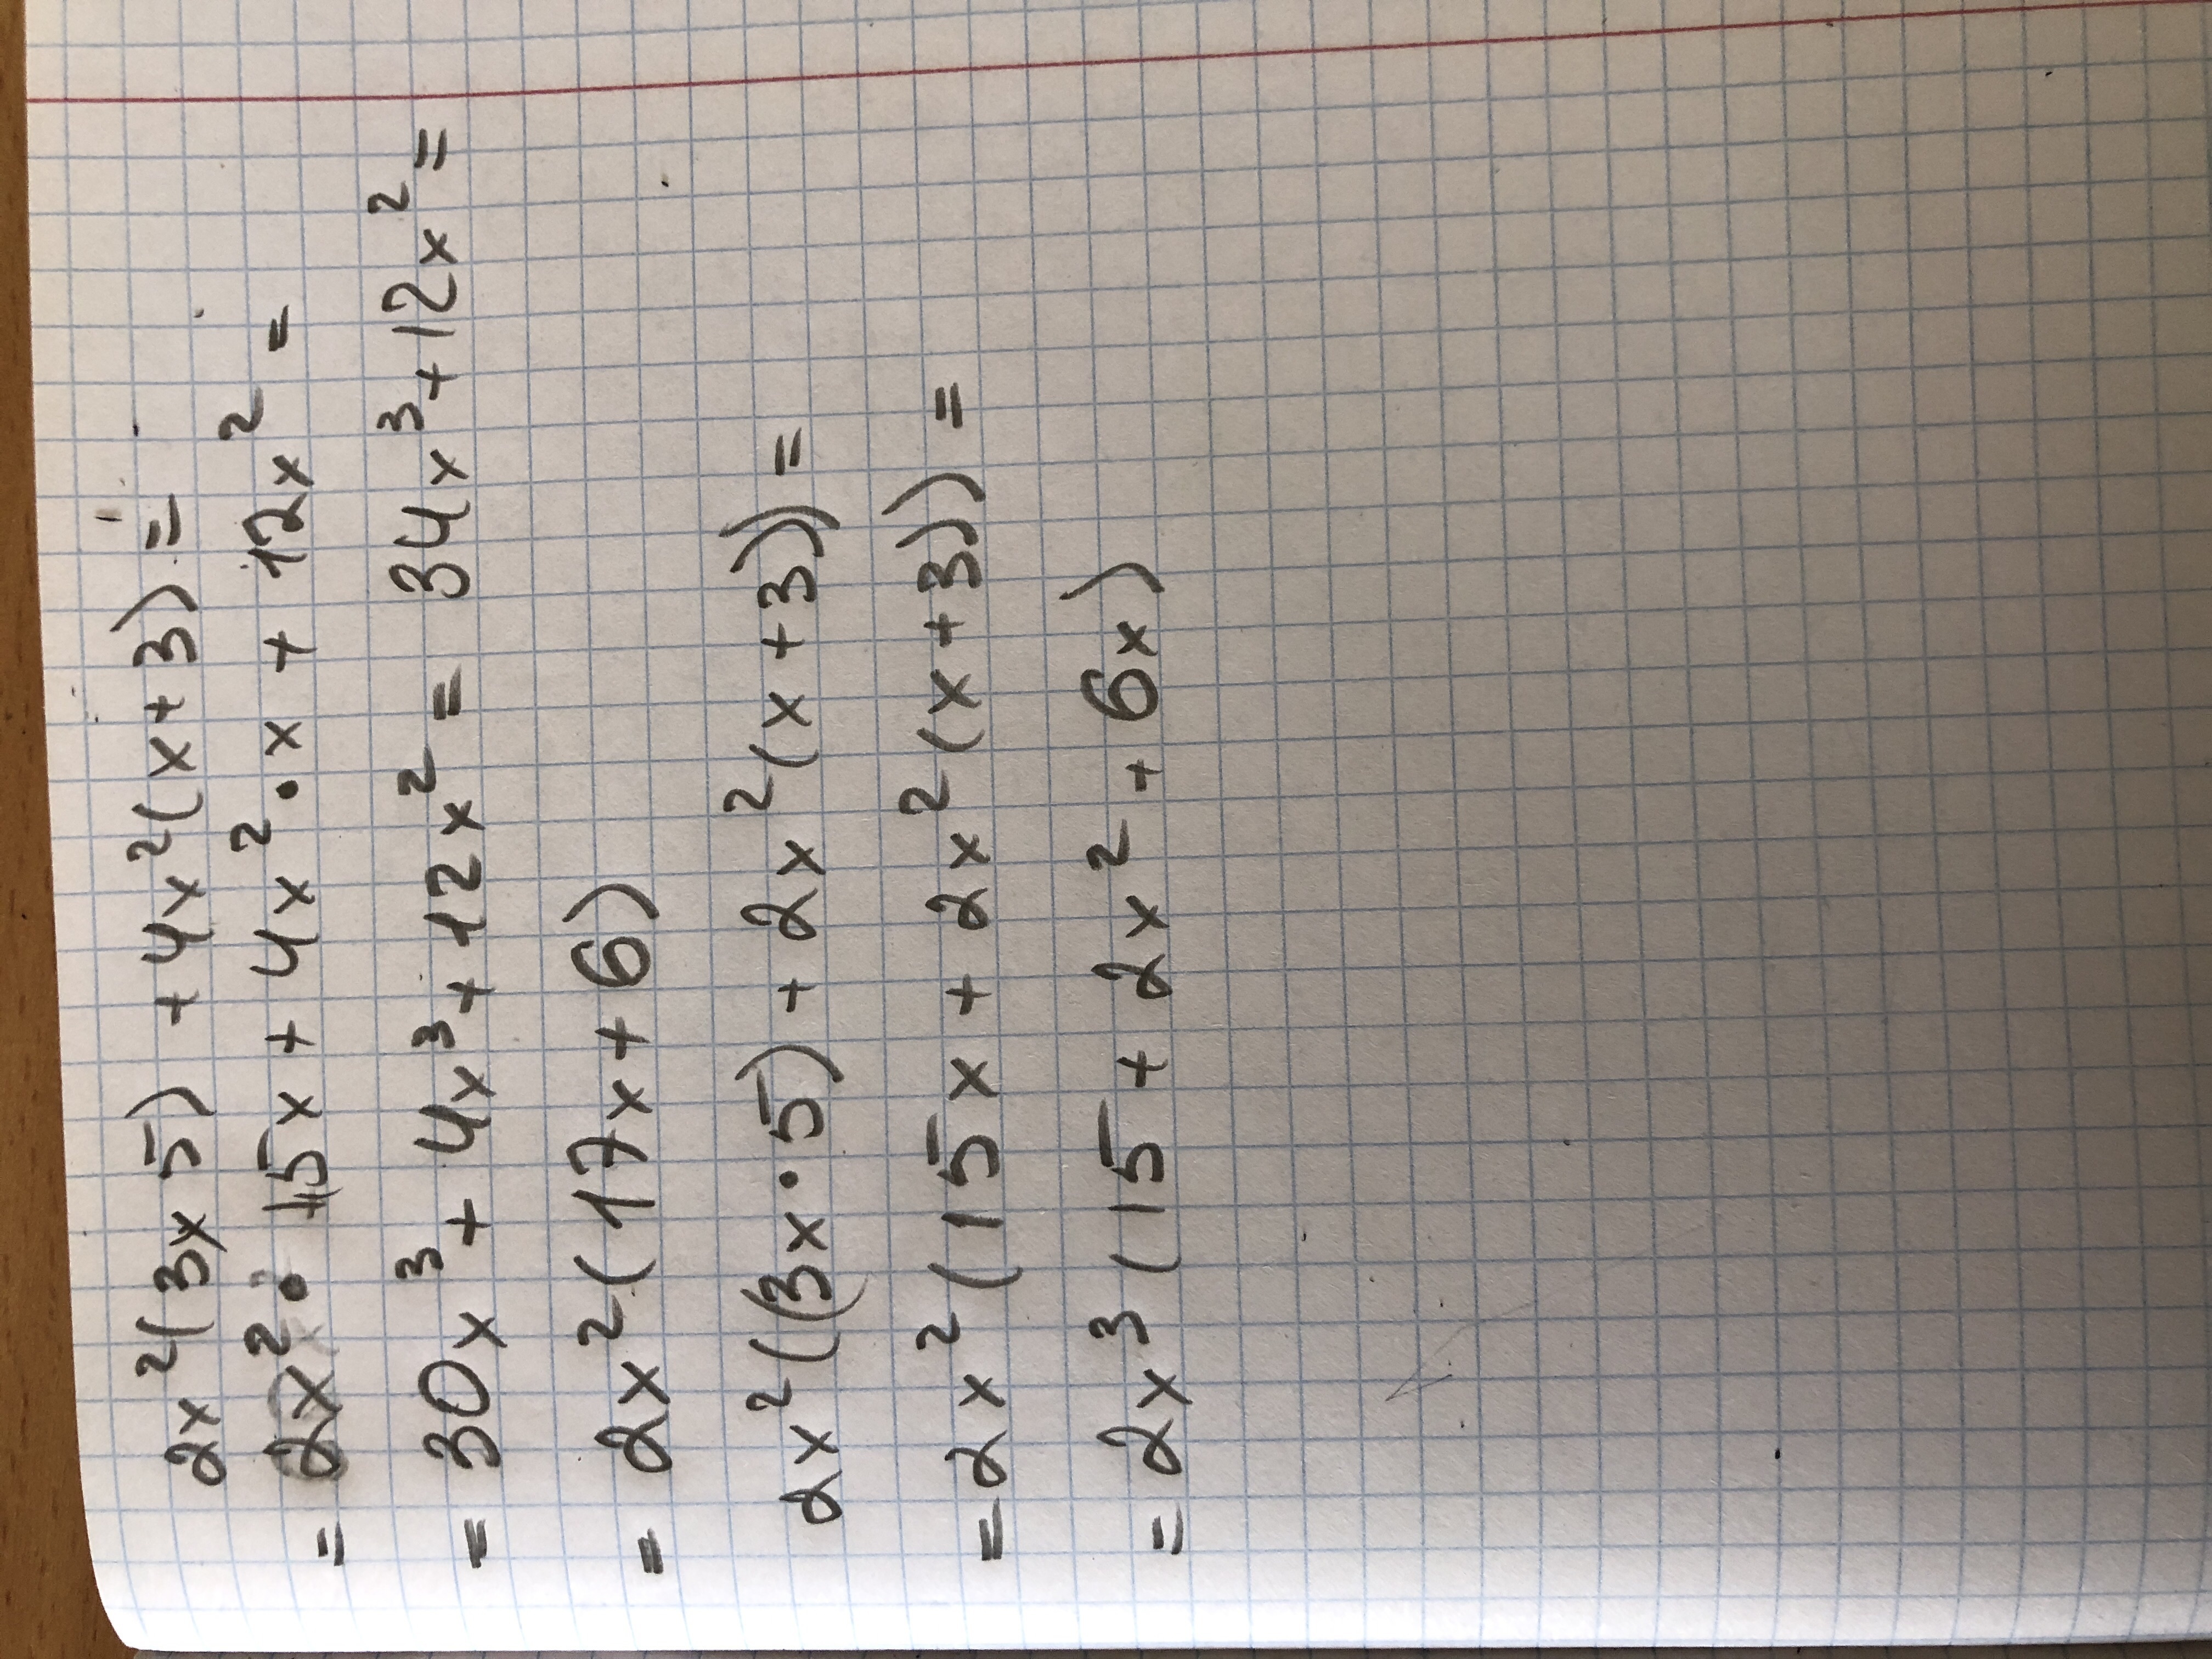 2x²(3x5) + 4x²(x+3) =
= 2x² · 15x + 4x² · x + 12x² =
= 30x³ + 4x³ + 12x² = 34x³ + 12x² =
= 2x²(17x + 6)
2x²((3x · 5) + 2x²(x + 3)) =
= 2x²(15x + 2x²(x + 3)) =
= 2x³(15 + 2x² + 6x)